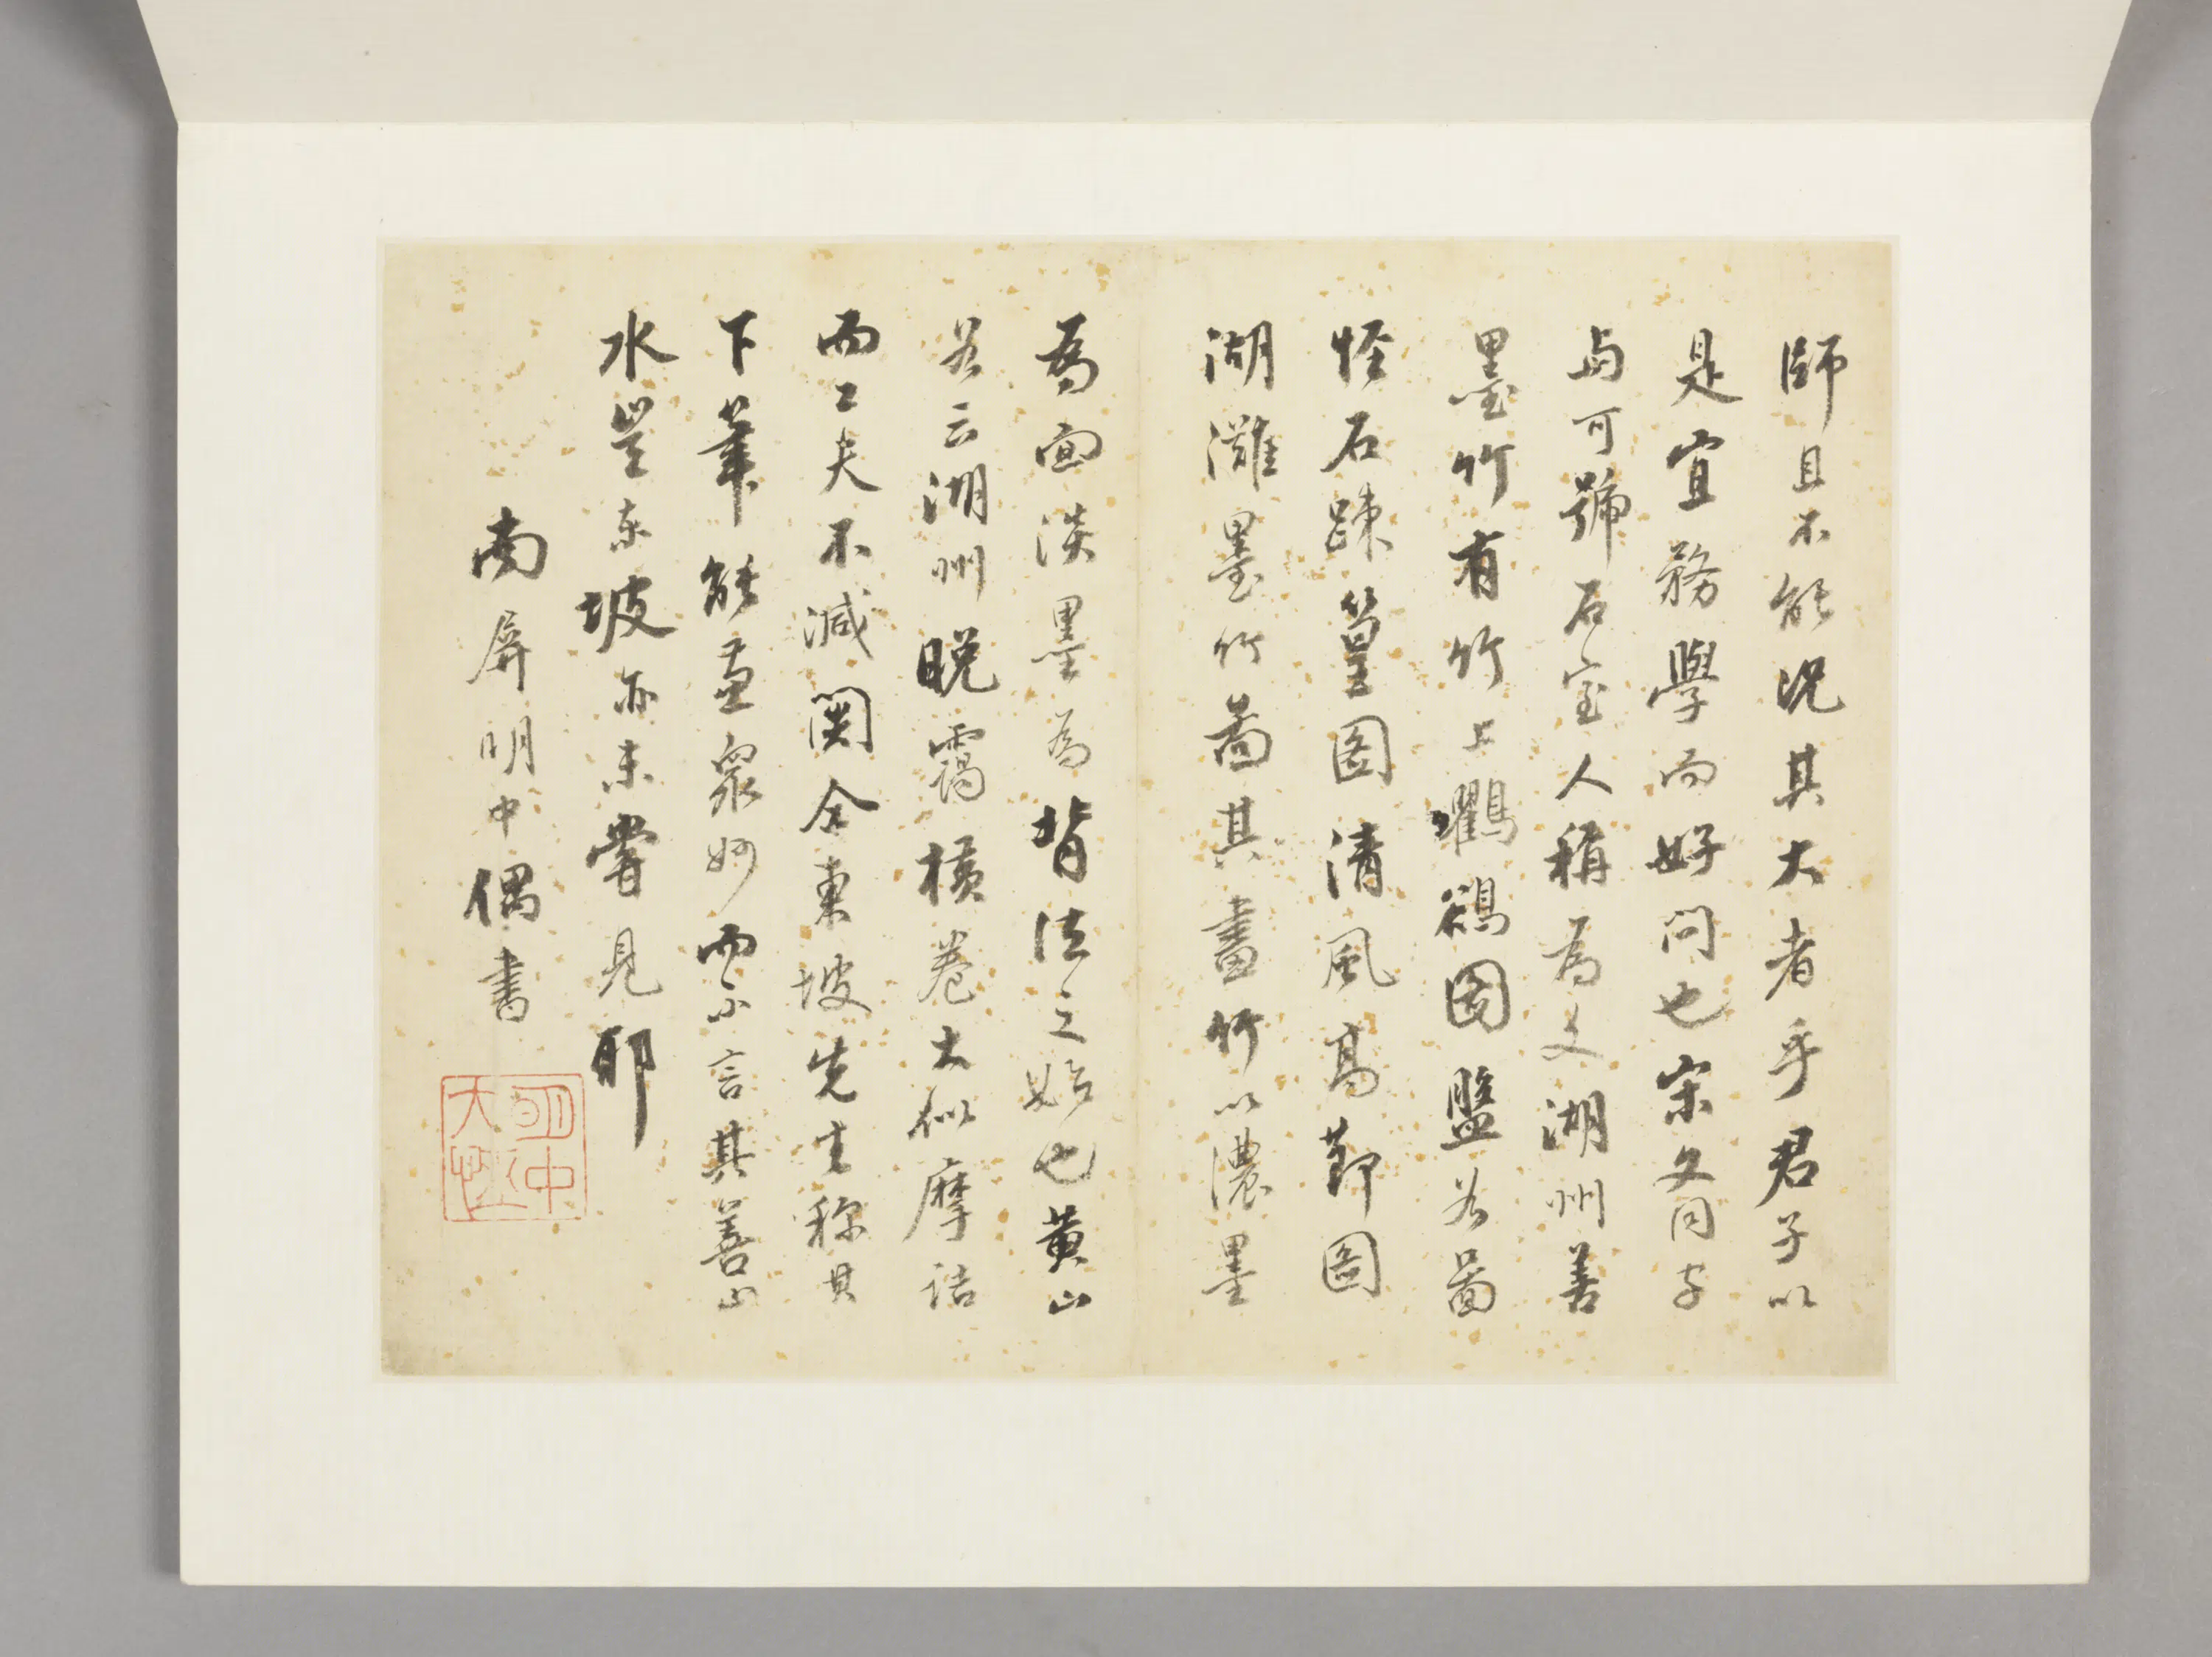 師且不能況其大者乎君子以
是宜務學而好問也宋文同字
与可號石室人稱為文湖州善
墨竹有竹上鸜鵒圖盤谷圖
怪石踈篁圖清風高節圖
湖灘墨竹圖其畫竹以濃墨
為面淡墨為背法之始也黄山
谷云湖州晚靄橫卷大似摩詰
而工夫不減関仝東坡先生稱其
下筆能盡衆妙而不言其善山
水豈东坡亦未嘗見耶
南屏明中偶書
明中大恒